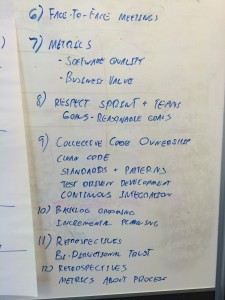 6) FACE-TO-FACE MEETINGS
7) METRICS
- SOFTWARE QUALITY
- BUSINESS VALUE
8) RESPECT SPRINT + TEAMS
GOALS - REASONABLE GOALS
9) COLLECTIVE CODE OWNERSHIP
CLEAN CODE
STANDARDS + PATTERNS
TEST DRIVEN DEVELOPMENT
CONTINUOUS INTEGRATION
10) BACKLOG GROOMING
INCREMENTAL PLANNING
11) RETROSPECTIVES
BI-DIRECTIONAL TRUST
12) RETROSPECTIVES
METRICS ABOUT PROCESS